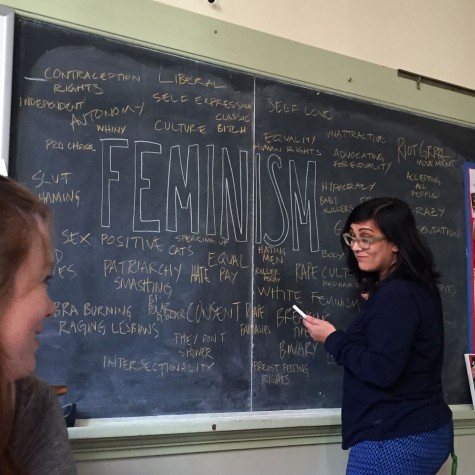 CONTRACEPTION
RIGHTS
LIBERAL
INDEPENDENT
AUTONOMY
SELF EXPRESSION
SELF LOVE
WHINY
CULTURE
CLASSIC
BITCH
PRO CHOICE
EQUALITY
HUMAN RIGHTS
UNATTRACTIVE
ADVOCATING
FOR EQUALITY
RIOT GRRRL
MOVEMENT
ACCEPTING
ALL
PEOPLE
FEMINISM
SLUT
HYPOCRACY
BABY
KILLERS
CRAZY
SEX POSITIVE
SPEAKING UP
CATS
HATING
MEN
PATRIARCHY
SMASHING
HATE
EQUAL
PAY
KILLER
RAPE
WHITE FEMINISM
BRA BURNING
RAGING LESBIANS
CONSENT
RAPE
BINARY
THEY DON'T
SHOWER
INTERSECTIONALITY
BREAST FEEDING
RIGHTS